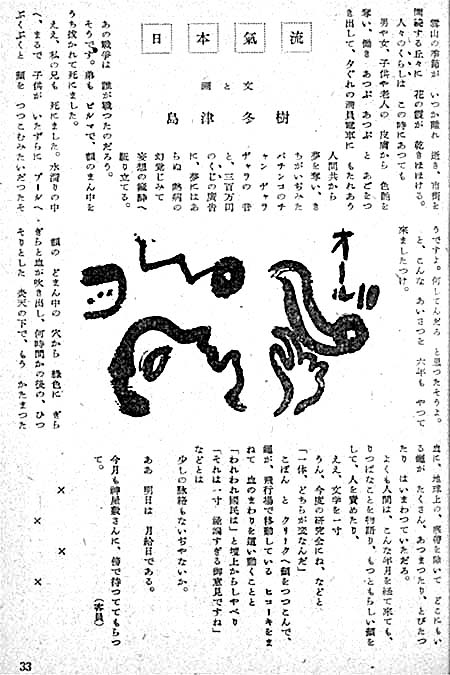 日本氣流
画と文
島津冬樹
雪山の季節が いつか離れ 逝き、市街を
する丘々に 花の霞が 乾きほける。
人々のくらしは この時にあつても
男や女、子供や老人の 皮膚から 色艶を
奪い、働き あつぷ あつぷ と あごをつ
き出して、夕ぐれの満員電車に もたれあう
人間共から
夢を奪い、き
ちがいぢみた
パチンコのチ
ャン ヂャラ
ヂャラの 音
と、三百万円
のくじの廣告
に、夢にはあ
らぬ 熱病の
幻覚じみて
妄想の へ
駈り立てる。
あの戦爭は 誰が戦つたのだろう。
そうです。弟も ビルマで、額のまん中を
うち抜かれて死にました。
ええ、私の兄も 死にました。水溜りの中
へ、まるで 子供が いたずらに プールへ
ぶくぶくと 頭を つつこむみたいだつたそ
うですよ。何してんだろ と思つたそうよ。
と、こんな あいさつと 六年も やつて
來ましたつけ。
オール
額の どまん中の 穴から 緑色に ぎら
ぎらと血が吹き出し、何時間かの後の、ひつ
そりとした 炎天の下で、もう かたまつた
血に、地球上の、寒帶を除いて どこにもい
る蠅が たくさん、あつまつたり、とびたつ
たり はいまわつていただろ。
よくも人間は、こんな年月を経て來ても、
りつぱなことを物語り、もつともらしい顔を
して、人を責めたり、
ええ、文学を一寸
うん、今度の研究会にね、などと
「一体、どちらが変なんだ」
こぽん と クリークへ頭をつつこんで、
蠅が、飛行場で移動している ヒコーキをま
ねて 血のまわりを這い動くことと
「われわれ國民は」と壇上からしやべり
「それは一寸 極論すぎる御意見ですね」
などとは
少しの脉絡もないぢやないか。
ああ 明日は 月給日である。
今月も神屋敷さんに、傍で待つててもらつ
て。
（客員）
×
×
×
×
33